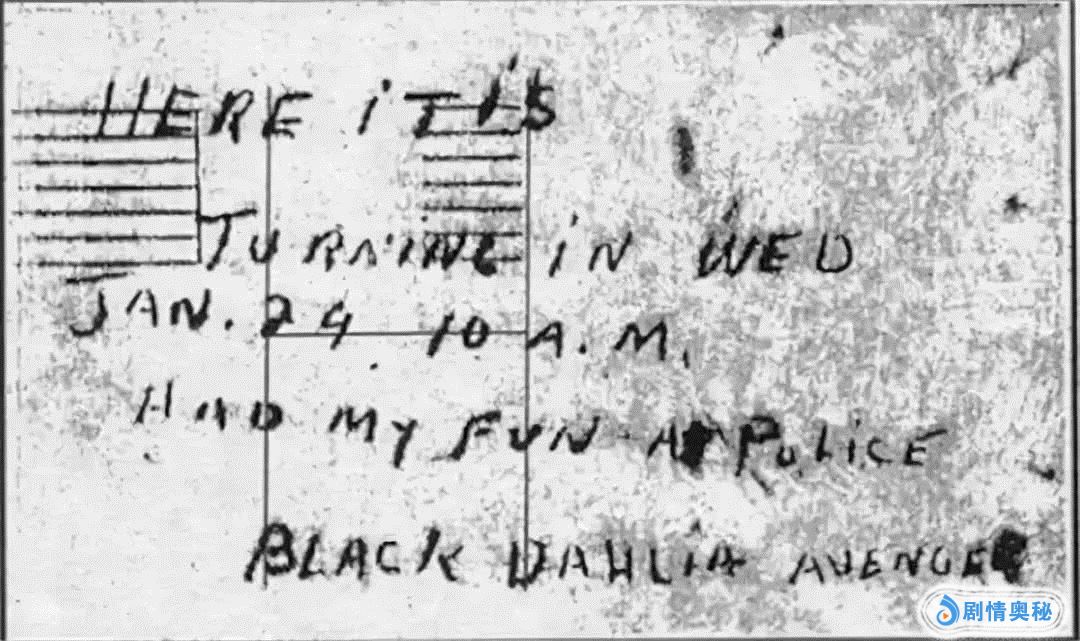 HERE iT iS
TURNiNG iN WED
JAN. 29 10 A.M.
HAD MY FUN AT POLiCE
BLACK DAHLIA AVENGER
剧情奥秘